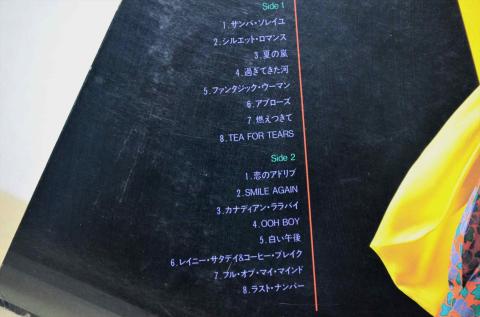 Side 1
1.サンバ・ソレイユ
2.シルエット・ロマンス
3.夏の嵐
4.過ぎてきた河
5.ファンタジック・ウーマン
6.アプローズ
7.燃えつきて
8.TEA FOR TEARS
Side 2
1.恋のアドリブ
2.SMILE AGAIN
3.カナディアン・ララバイ
4.OOH BOY
5.白い午後
6.レイニー・サタデイ&コーヒー・ブレイク
7.フル・オブ・マイ・マインド
8.ラスト・ナンバー